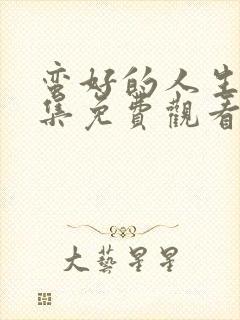 蛮好的人生
集免費觀看
大藝星星